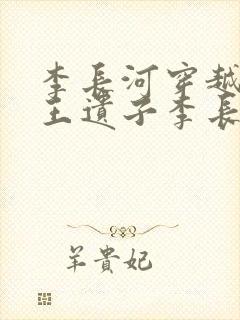 李長河穿越
王遺子李長
羊貴妃